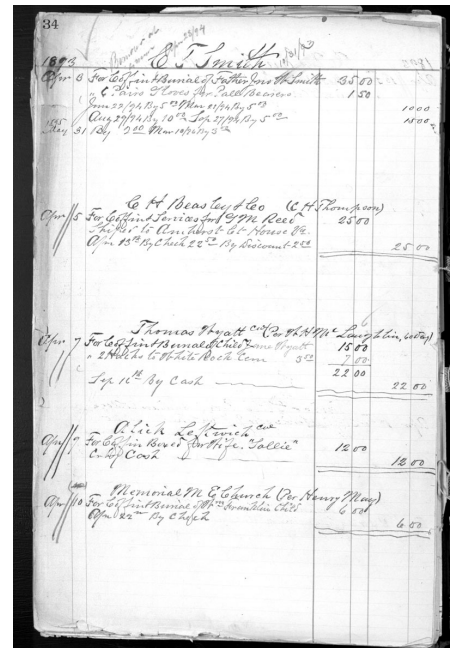 34
E T Smith
1893
Apr 3 For Coffin & Burial of Father Jno W Smith 35 00
" 6 Pairs Gloves for Pall Bearers 1 50
Jan 22/94 By 5 00 Mar 21/94 By 5 00 10 00
Aug 29/94 By 10 00 Sep 27/94 By 5 00 15 00
1895
May 31 By 2 00 Mar 19/96 By 3 00
C H Beasley & Co (C H Thompson)
Apr 5 For Coffin & Services for G M Reed 25 00
Shiped to Amherst Ct House Va.
Apr 13th By Check 22 50 By Discount 2 50 25 00
Thomas Wyatt cold (Per W H McLaughlin, 60 day)
Apr 7 For Coffin & Burial of Child Wyatt 15 00
" 2 Hacks to White Rock Cem 3 50 7 00
22 00
Sep 16th By Cash 22 00
Alick Leftwich cold
Apr 9 For Coffin Boxed for Wife "Sallie" 12 00
Cr By Cash 12 00
Memorial M E Church (Per Henry May)
Apr 10 For Coffin & Burial of Wm Franklin Child 6 00
Apr 22nd By Check 6 00